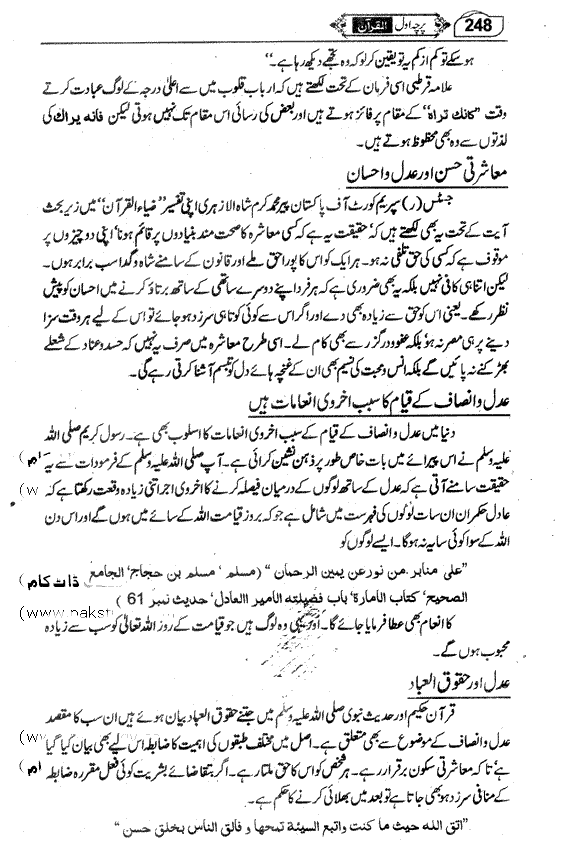 248
القرآن
پرچہ اول
ہوسکے تو کم از کم یہ تو یقین کرلو کہ وہ تجھے دیکھ رہا ہے۔‘‘
علامہ قرطبی اسی فرمان کے تحت لکھتے ہیں کہ ارباب قلوب میں سے اعلیٰ درجہ کے لوگ عبادت کرتے
وقت ”كانك تراه“ کے مقام پر فائز ہوتے ہیں اور بعض کی رسائی اس مقام تک نہیں ہوتی لیکن فانه يراك کی
لذتوں سے وہ بھی محظوظ ہوتے ہیں۔
معاشرتی حسن اور عدل و احسان
جسٹس (ر) سپریم کورٹ آف پاکستان پیر محمد کرم شاہ الازہری اپنی تفسیر ”ضیاء القرآن“ میں زیر بحث
آیت کے تحت یہ بھی لکھتے ہیں کہ ’حقیقت یہ ہے کہ کسی معاشرہ کا صحت مند بنیادوں پر قائم ہونا‘ اپنی دو چیزوں پر
موقوف ہے کہ کسی کی حق تلفی نہ ہو۔ ہر ایک کو اس کا پورا حق ملے اور قانون کے سامنے شاہ و گدا سب برابر ہوں۔
لیکن اتنا ہی کافی نہیں بلکہ یہ بھی ضروری ہے کہ ہر فرد اپنے دوسرے ساتھی کے ساتھ برتاؤ کرنے میں احسان کو پیش
نظر رکھے۔ یعنی اس کو حق سے زیادہ بھی دے اور اگر اس سے کوئی کوتاہی سرزد ہو جائے تو اس کے لیے ہر وقت سزا
دینے پر ہی مصر نہ ہو‘ بلکہ عفو و درگزر سے بھی کام لے۔ اسی طرح معاشرہ میں صرف یہ نہیں کہ حسد و عناد کے شعلے
بھڑکنے نہ پائیں گے بلکہ انس و محبت کی نسیم بھی ان کے غنچہ ہائے دل کو تبسم آشنا کرتی رہے گی۔
عدل و انصاف کے قیام کا سبب اخروی انعامات ہیں
دنیا میں عدل و انصاف کے قیام کے سبب اخروی انعامات کا اسلوب بھی ہے۔ رسول کریم صلی اللہ
علیہ وسلم نے اس پیرائے میں بات خاص طور پر ذہن نشین کرائی ہے۔ آپ صلی اللہ علیہ وسلم کے فرمودات سے یہ
حقیقت سامنے آتی ہے کہ عدل کے ساتھ لوگوں کے درمیان فیصلہ کرنے کا اخروی اجر اتنی زیادہ وقعت رکھتا ہے کہ
عادل حکمران ان سات لوگوں کی فہرست میں شامل ہے جو کہ بروز قیامت اللہ کے سائے میں ہوں گے اور اس دن
اللہ کے سوا کوئی سایہ نہ ہوگا۔ ایسے لوگوں کو
”على منابر من نور عن يمين الرحمان“ (مسلم ‘ مسلم بن حجاج‘ الجامع
ڈاٹ کام
الصحيحه‘ کتاب الامارة‘ باب فضيلته الامير العادل‘ حديث نمبر 61 )
(www.pakst
کا انعام بھی عطا فرمایا جائے گا۔ اور یہی وہ لوگ ہیں جو قیامت کے روز اللہ تعالیٰ کو سب سے زیادہ
محبوب ہوں گے۔
عدل اور حقوق العباد
قرآن حکیم اور حدیث نبوی صلی اللہ علیہ وسلم میں جتنے حقوق العباد بیان ہوئے ہیں ان سب کا مقصد
عدل و انصاف کے موضوع سے بھی متعلق ہے۔ اصل میں مختلف طبقوں کی اہمیت کا ضابطہ اس لیے بھی بیان کیا گیا
ہے تاکہ معاشرتی سکون برقرار رہے۔ ہر شخص کو اس کا حق ملتا رہے۔ اگر بتقاضائے بشریت کوئی فعل مقررہ ضابطہ
کے منافی سرزد ہو بھی جاتا ہے تو بعد میں بھلائی کرنے کا حکم ہے۔
”اتق الله حيث ما كنت واتبع السيئة تمحها و فالق الناس بخلق حسن“